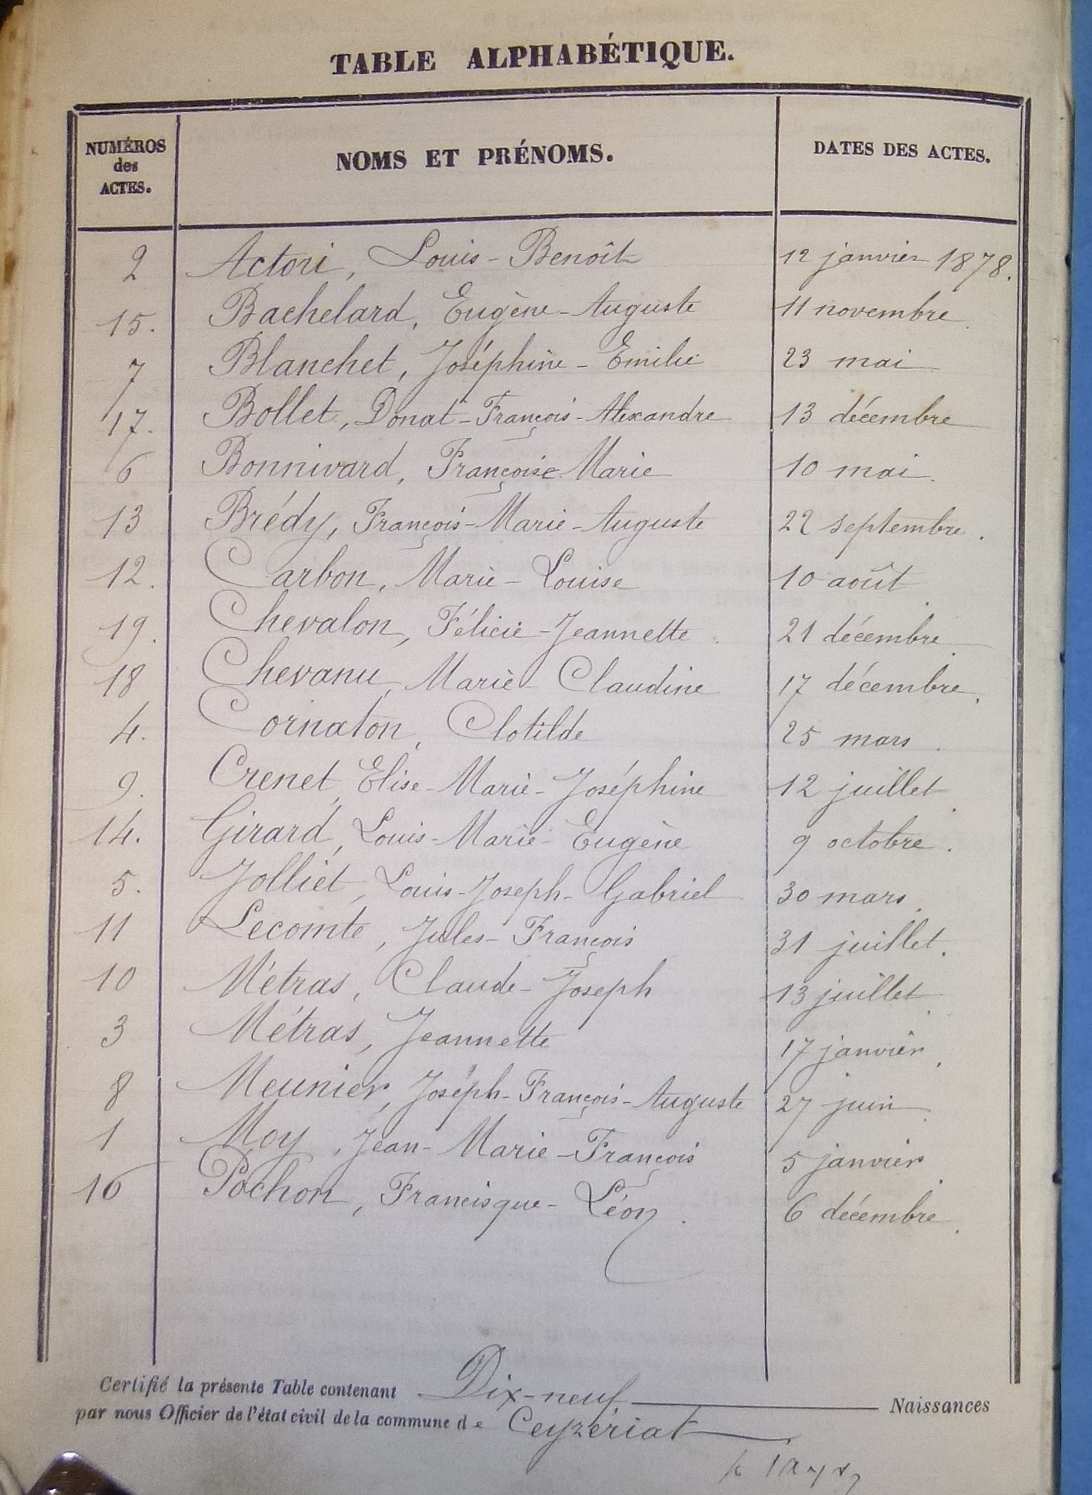 TABLE ALPHABÉTIQUE.
NUMÉROS des ACTES. NOMS ET PRÉNOMS. DATES DES ACTES.
2 Actori, Louis-Benoît 12 janvier 1878.
15. Bachelard, Eugène-Auguste 11 novembre
7 Blanchet, Joséphine-Emilie 23 mai
17. Bollet, Donat-François-Alexandre 13 décembre
6 Bonnivard, Françoise Marie 10 mai.
13 Brédy, François-Marie-Auguste 22 septembre.
12. Carbon, Marie-Louise 10 août
19. Chevalon, Félicie-Jeannette 21 décembre
18 Chevanu, Marie-Claudine 17 décembre.
4. Cornaton, Clotilde 25 mars
9. Crenet, Elise-Marie-Joséphine 12 juillet
14. Girard, Louis-Marie-Eugène 9 octobre.
5. Jolliet, Louis-Joseph-Gabriel 30 mars
11 Lecomte, Jules-François 31 juillet.
10 Métras, Claude-Joseph 13 juillet
3 Métras, Jeannette 17 janvier
8 Meunier, Joseph-François-Auguste 27 juin
1 Moy, Jean-Marie-François 5 janvier
16 Pochon, Francisque-Léon. 6 décembre
Certifié la présente Table contenant Dix-neuf Naissances
par nous Officier de l'état civil de la commune de Ceyzériat